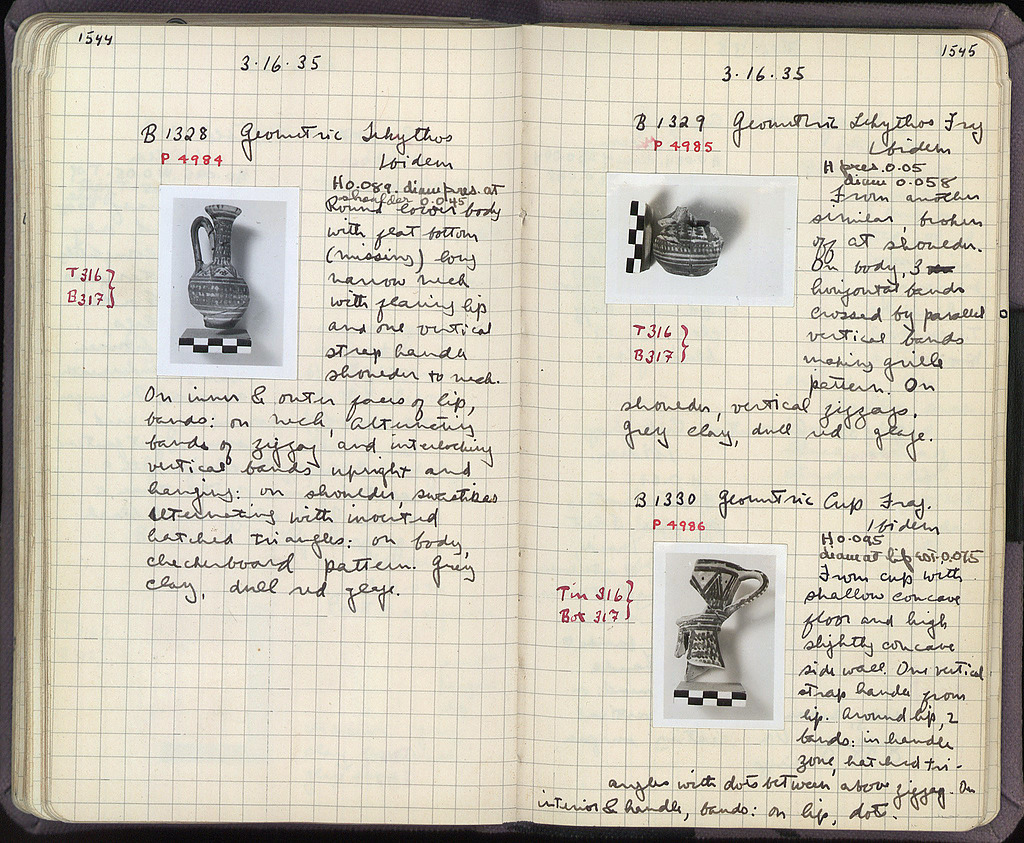 1544
3·16·35
B 1328 Geometric Lekythos
P 4984
Ibidem
H 0.089. diam pres. at
shoulder 0.045
Round lower body
with flat bottom
(missing) long
narrow neck
with flaring lip
and one vertical
strap handle
shoulder to neck.
T 316
B 317
On inner & outer faces of lip,
bands: on neck, alternating
bands of zigzag and interlocking
vertical bands upright and
hanging: on shoulder, swastikas
alternating with inverted
hatched triangles: on body,
checkerboard pattern. Grey
clay, dull red glaze.
1545
3·16·35
B 1329 Geometric Lekythos Frag
P 4985
Ibidem
H pres. 0.05
diam 0.058
From another
similar, broken
off at shoulder.
On body, 3
horizontal bands
crossed by parallel
vertical bands
making grille
pattern. On
T 316
B 317
shoulder, vertical zigzags.
Grey clay, dull red glaze.
B 1330 Geometric Cup Frag.
P 4986
Ibidem
H 0.095
diam at lip est. 0.075
From cup with
shallow concave
floor and high
slightly concave
side wall. One vertical
strap handle from
lip. Around lip, 2
bands: in handle
zone, hatched tri-
Tin 316
Bot 317
angles with dots between above zigzag. On
interior & handle, bands: on lip, dots.